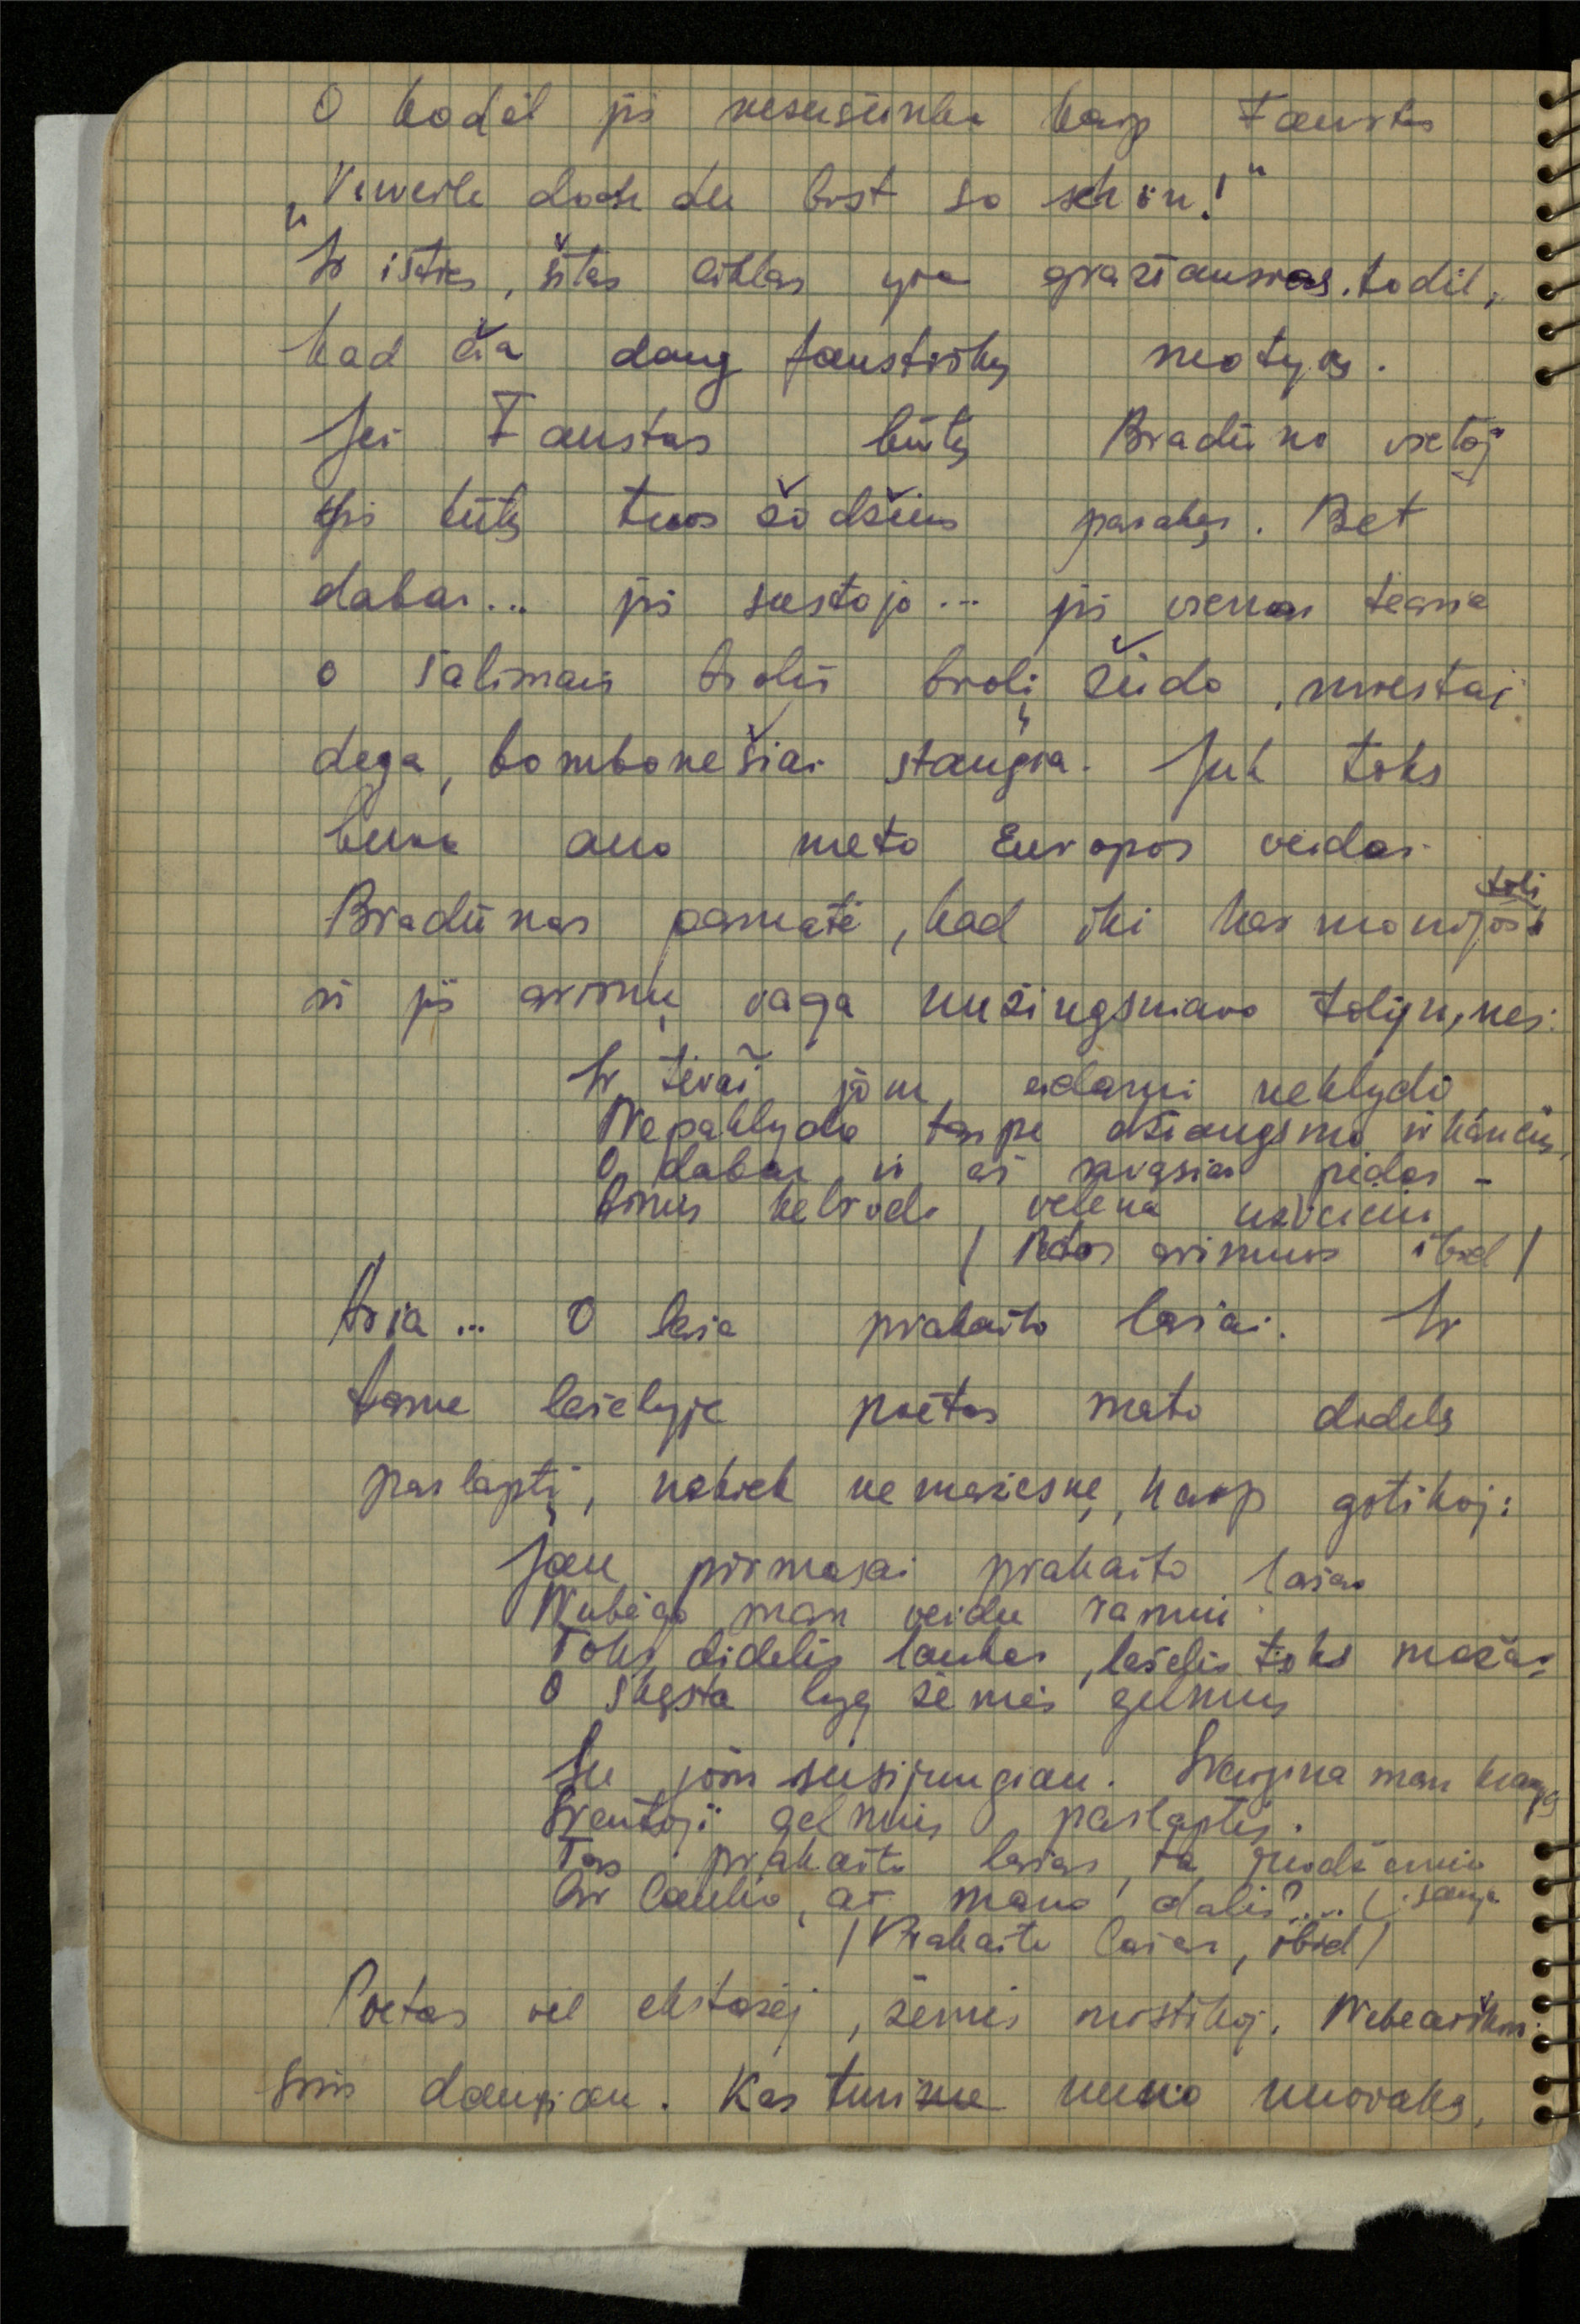 O kodėl jis nesušunka kaip Faustas
„Verweile doch du bist so schön!"
Ir išties, šitas ciklas yra gražiausias. todėl,
kad čia daug faustiškų motyvų.
Jei Faustas būtų Bradūno vietoj
jis būtų tuos žodžius pasakęs. Bet
dabar... jis sustojo... jis vienas tėra
o šalimais brolis brolį žudo, miestai
dega, bombonešiai staugia. Juk toks
buvo ano meto Europos veidas.
Bradūnas pamatė, kad iki harmonijos toli
ir jis arimų vaga nužingsniavo tolyn, nes:
Ir tėvai jom eidami neklydo
Nepaklydo tarpe džiaugsmo ir kančių,
O dabar ir aš savąsias pėdas -
arimuos velėna
/ Pėdos arimuos ibid /
Aria... O laša prakaito lašai. Ir
tame lašelyje poetas mato didelę
paslaptį, nekiek nemažesnę, kaip gotikoj:
Jau pirmasai prakaito lašas
Nubėgo man veidu ramiu.
Toks didelis laukas, lašelis toks mažas
O skęsta lyg žemės gelmių
Su jom susijungiau. Svaigina man kraują
Šventoji gelmės paslaptis.
Tas prakaito lašas, ta juodžemio sauja
Ar lauko, ar mano dalis?...
/ Prakaito lašas, ibid /
Poetas vėl ekstazėj, žemės mistikoj. Nebeaiškus
šis daugiau. Kas turime nuovoką,